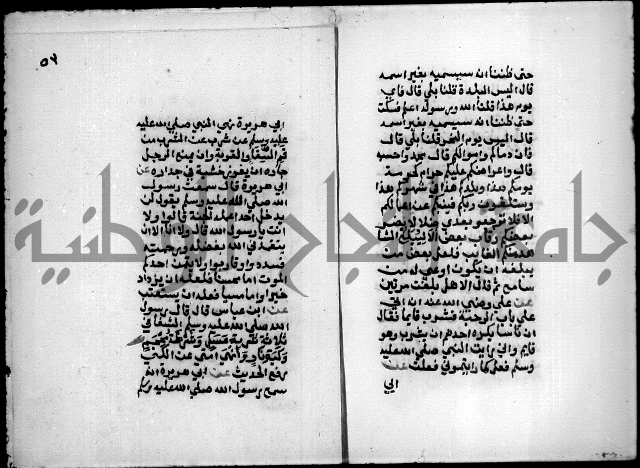 حتى ظننا انه سيسميه بغير اسمه
قال اليس البلدة قلنا بلي قال فاي
يوم هذا قلنا الله ورسوله اعلم فسكت
حتى ظننا انه سيسميه بغير اسمه
قال اليس يوم النحر قلنا بلي قال
فان دماكم واموالكم قال محمد واحسبه
قال واعراضكم عليكم حرام كحرمة
يومكم هذا في بلدكم هذا في شهركم هذا
وستلقون ربكم فيسئلكم عن اعمالكم
الا فلا ترجعوا بعدي ضلالا يضرب
بعضكم رقاب بعض الا ليبلغ الشاهد
منكم الغايب فلعل بعض من
يبلغه ان يكون اوعي له من
سامع ثم قال الا هل بلغت مرتين
عن علي رضي الله عنه انه اتي
علي باب الرحبة فشرب قايما فقال
ان ناسا يكره احدهم ان يشرب وهو
قايم واني رايت النبي صلي الله عليه
وسلم فعل كما رايتموني فعلت عن
ابي
٥٦
ابي هريرة نهي النبي صلي الله عليه
عليه وسلم عن شرب عن الشرب من
فم السقا والقربة وان يمنع الرجل
جاره ان يغرز خشبة في جداره عن
ابي هريرة قال سمعت رسول
الله صلي الله عليه وسلم يقول لن
يدخل احدا عمله الجنة قالوا ولا
انت يا رسول الله قال ولا انا الا ان
يتغمدني الله بفضله ورحمته
فسددوا وقاربوا ولا يتمن احدكم
الموت اما محسنا فلعله ان يزداد
خيرا واما مسيا فعله ان يستعتب
عن ابن عباس قال قال رسول
الله صلي الله عليه وسلم الشفا في
ثلاثة شربة عسل وشرطة محجم
وكية نار وانهي امتي عن الكي
رفع الحديث عن ابي هريرة انه
سمع رسول الله صلي الله عليه وسلم
جامعة النجاح الوطنية